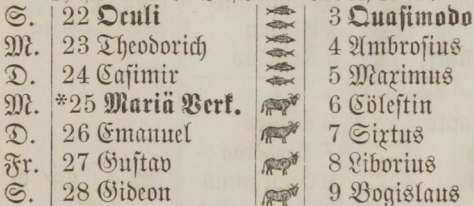 S. 22 Oculi 3 Quasimodo
M. 23 Theodorich 4 Ambrosius
D. 24 Casimir 5 Maximus
M. *25 Mariä Verk. 6 Cölestin
D. 26 Emanuel 7 Sixtus
Fr. 27 Gustav 8 Liborius
S. 28 Gideon 9 Bogislaus